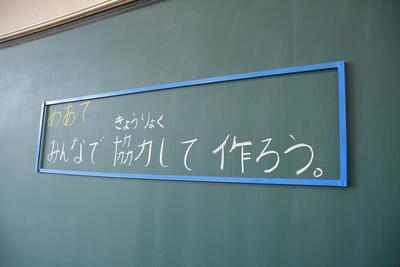 めあて
きょうりょく
みんなで 協力して 作ろう。